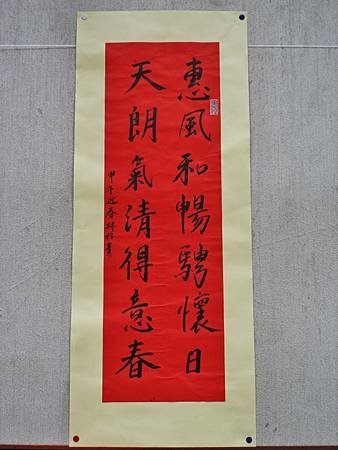 惠風和暢騁懷日
天朗氣清得意春
甲午迎春林